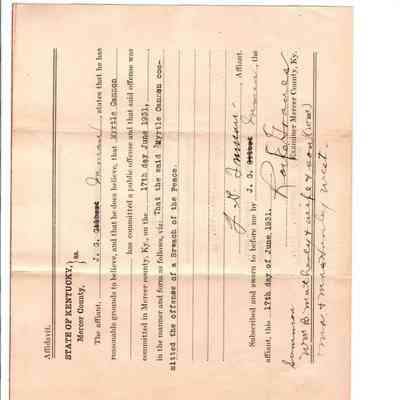 Affidavit.
STATE OF KENTUCKY, }
Mercer County, } ss
The affiant, J. G. Inman, states that he has
reasonable grounds to believe, and that he does believe, that Myrtle Cannon
has committed a public offense and that said offense was
committed in Mercer county, Ky., on the 17th day June 1931,
in the manner and form as follows, viz: That the said Myrtle Cannon com-
mitted the offense of a Breach of the Peace.
J. G. Inman Affiant.
Subscribed and sworn to before me by J. G. Inman, the
affiant, this 17th day of June, 1931.
Examiner Mercer County, Ky.
Summon
Wm B. & wife & son (Wm)
Mr & Mrs West.